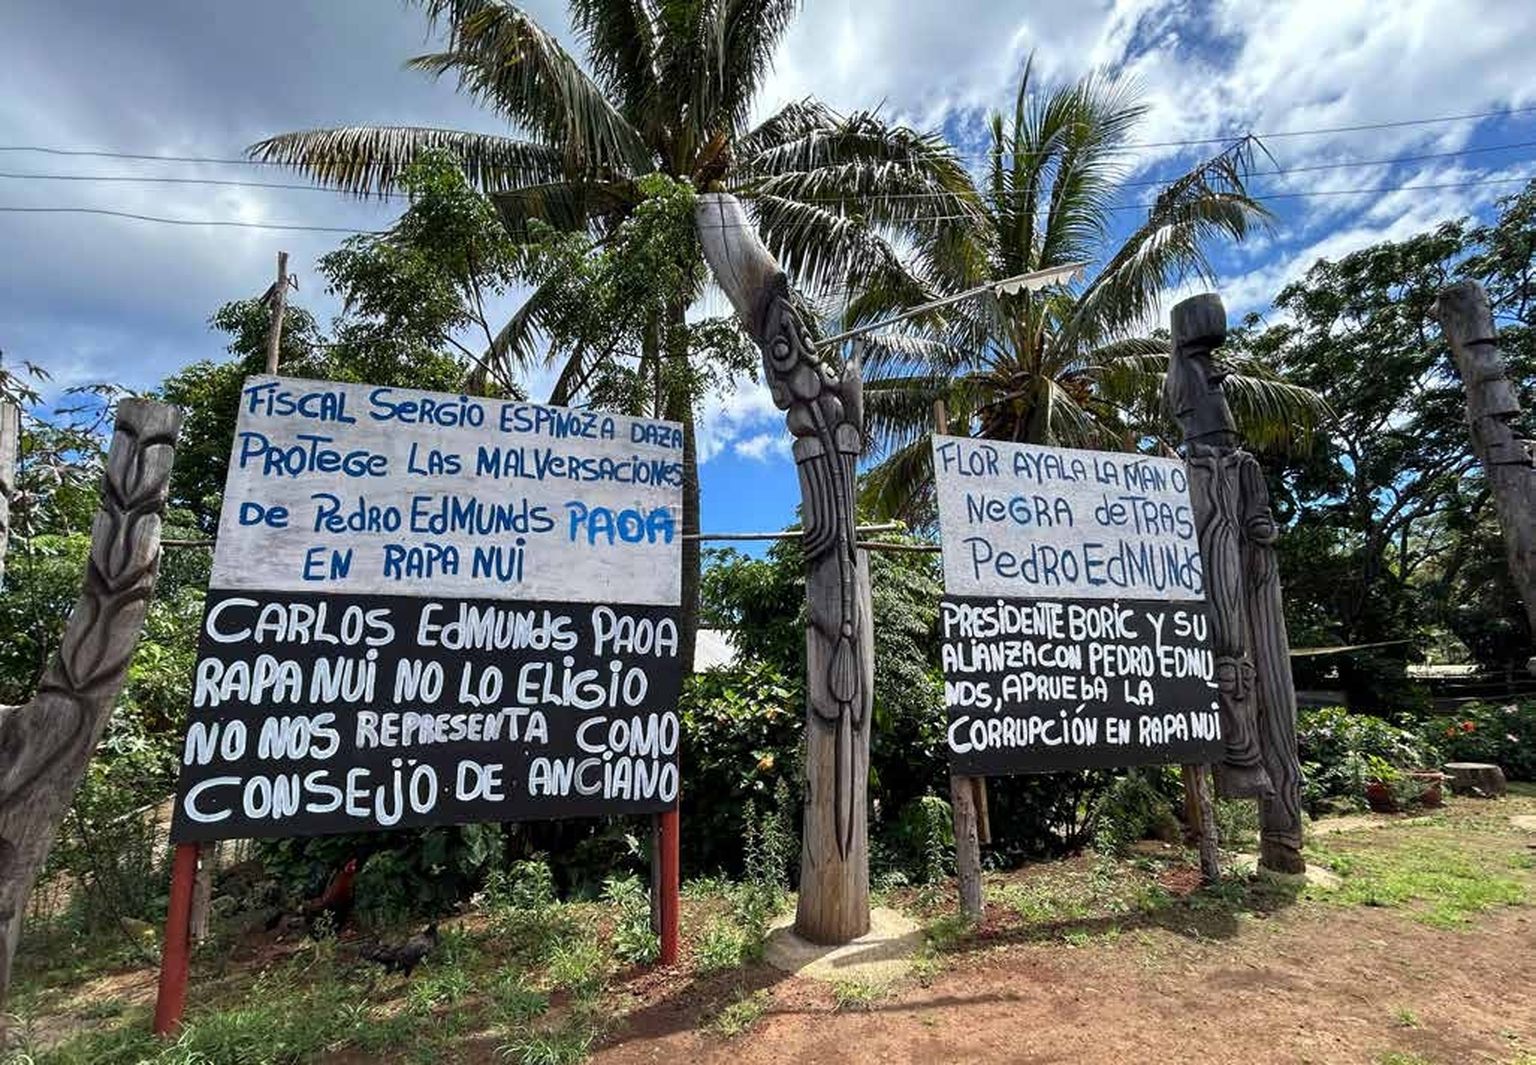 FISCAL SERGIO ESPINOZA DAZA
PROTEGE LAS MALVERSACIONES
DE PEDRO EDMUNDS PAOA
EN RAPA NUI
CARLOS EDMUNDS PAOA
RAPA NUI NO LO ELIGIO
NO NOS REPRESENTA COMO
CONSEJO DE ANCIANO
FLOR AYALA LA MANO
NEGRA DETRAS
PEDRO EDMUNDS
PRESIDENTE BORIC Y SU
ALIANZA CON PEDRO EDMU
NDS, APRUEBA LA
CORRUPCIÓN EN RAPA NUI